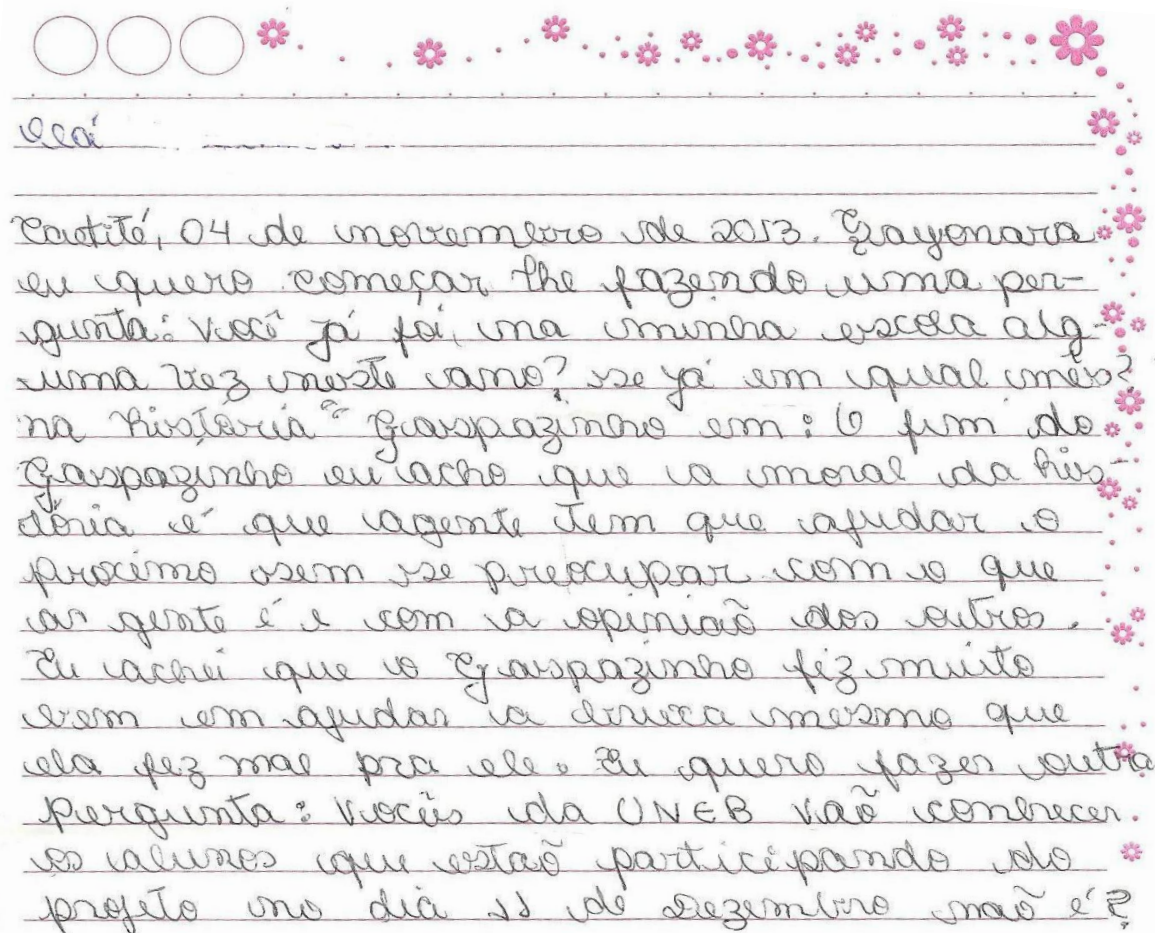 Caetité, 04 de novembro de 2013. Grayonara
eu quero começar lhe fazendo uma per-
gunta: Você já foi, na minha escola alg-
uma vez neste ano? se já em qual mês?
na história “Gaspazinho em: O fim do
Gaspazinho eu acho que a moral da his-
tória é que agente tem que ajudar o
procimo sem se preocupar com o que
as gente é e com a opiniaõ dos outros.
Eu achei que o Gaspazinho fez muito
bem em ajudar a bruxa mesmo que
ela fez mal pra ele. Eu quero fazer outra
Pergunta: Vocês da UNEB vaõ conhecer
os alunos que estaõ participando do
projeto no dia 11 de Dezembro naõ é?